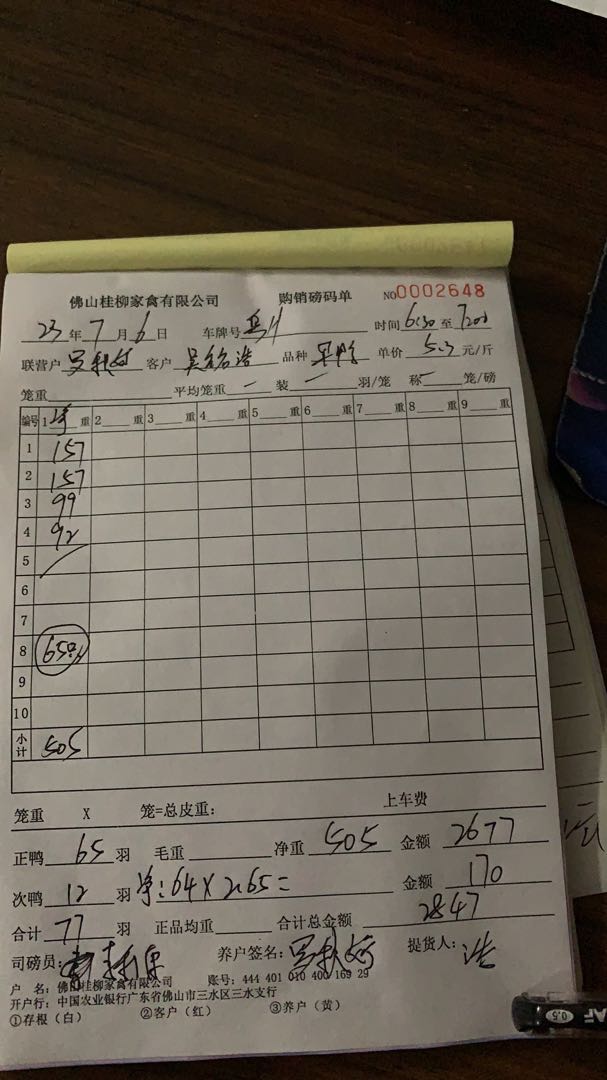 佛山桂柳家禽有限公司 购销磅码单 NO0002648
23年7月6日 车牌号 时间6:30至7:00
联营户 客户 吴铭浩 品种 单价5.3元/斤
笼重 平均笼重 一 装 一 羽/笼 称 一 笼/磅
编号 1 重 2 重 3 重 4 重 5 重 6 重 7 重 8 重 9 重
1 157
2 157
3 99
4 92
5
6
7
8 65只
9
10
小计 505
笼重 X 笼=总皮重: 上车费
正鸭 65 羽 毛重 净重 505 金额 2677
次鸭 12 羽 净:64×2.65= 金额 170
合计 77 羽 正品均重 合计总金额 2847
司磅员: 养户签名: 提货人: 浩
户 名: 佛山桂柳家禽有限公司 账号: 444 401 010 400 169 29
开户行: 中国农业银行广东省佛山市三水区三水支行
①存根(白) ②客户(红) ③养户(黄)
AF 0.5